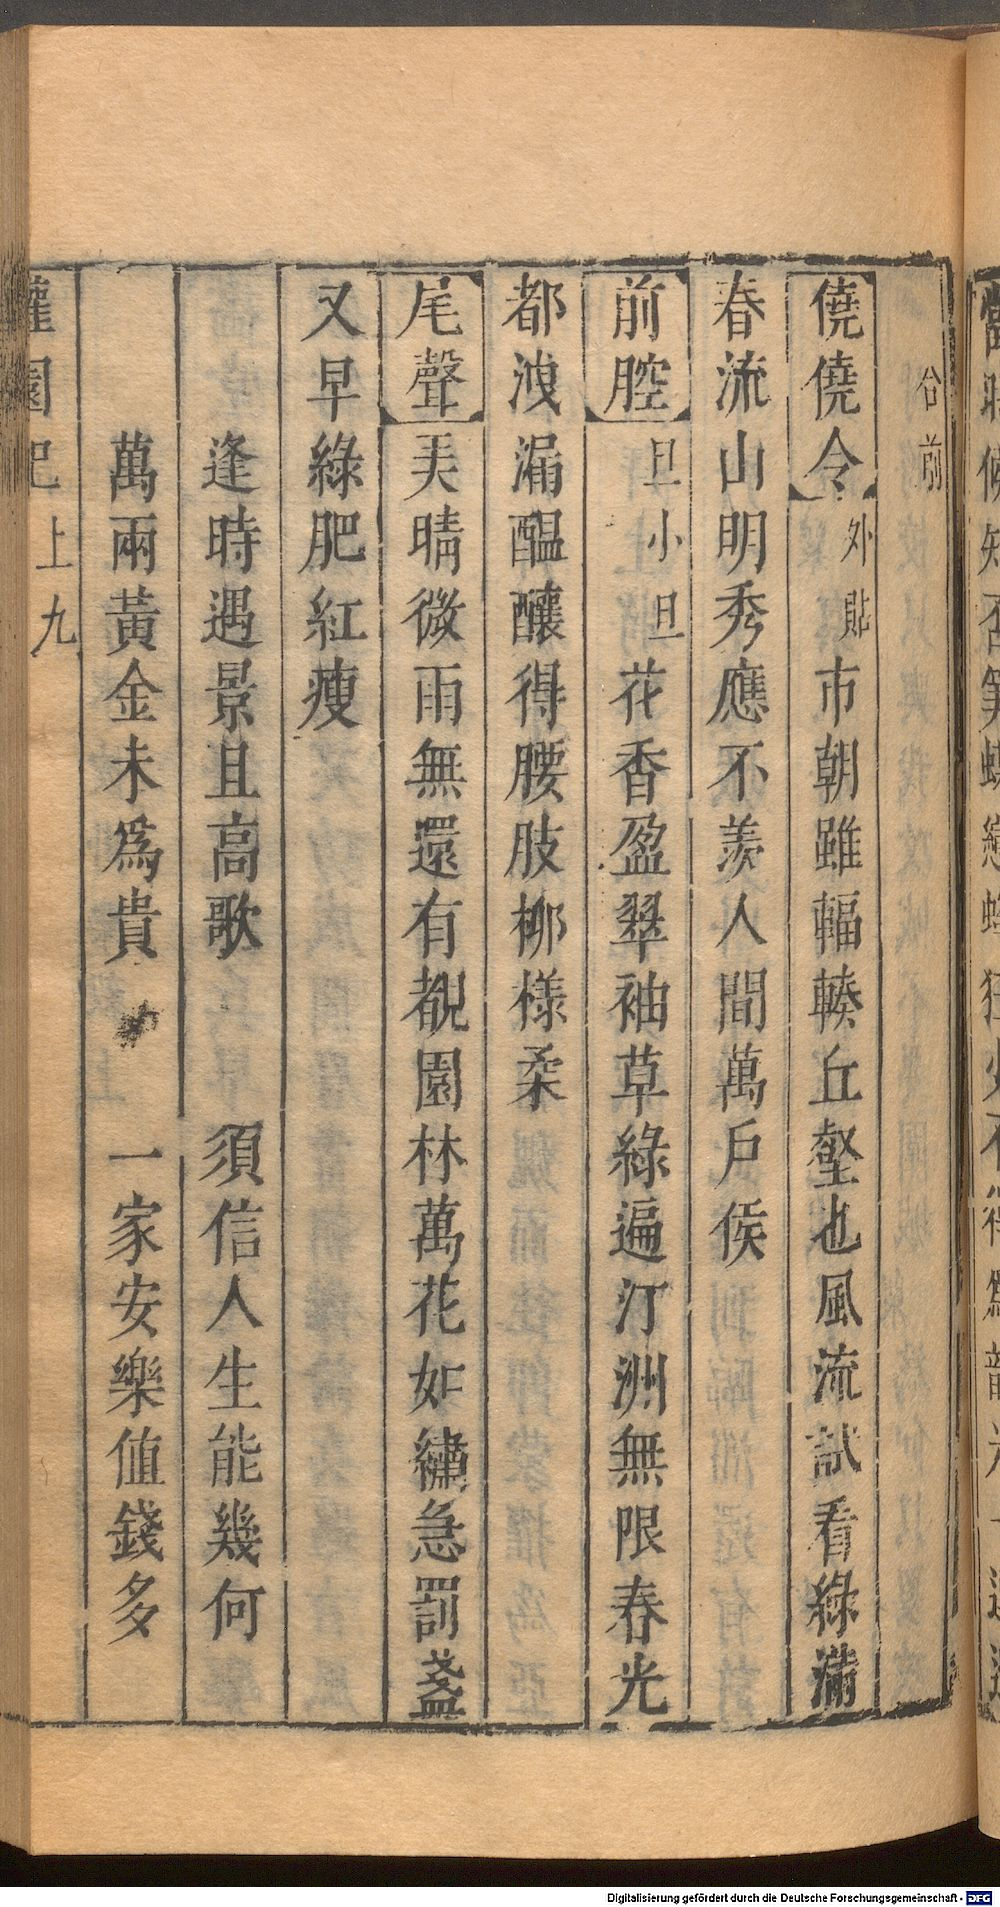 合前
僥僥令外貼市朝雖輻輳丘壑也風流試看綠滿
春流山明秀應不羨人間萬戶侯
前腔旦小旦花香盈翠袖草綠遍汀洲無限春光
都洩漏醞釀得腰肢栁樣柔
尾聲美晴微雨無還有覩園林萬花如繡急罰盞
又早綠肥紅瘦
逢時遇景且高歌 須信人生能幾何
萬兩黃金未爲貴 一家安樂值錢多
灌園記 上 九
Digitalisierung gefördert durch die Deutsche Forschungsgemeinschaft - DFG